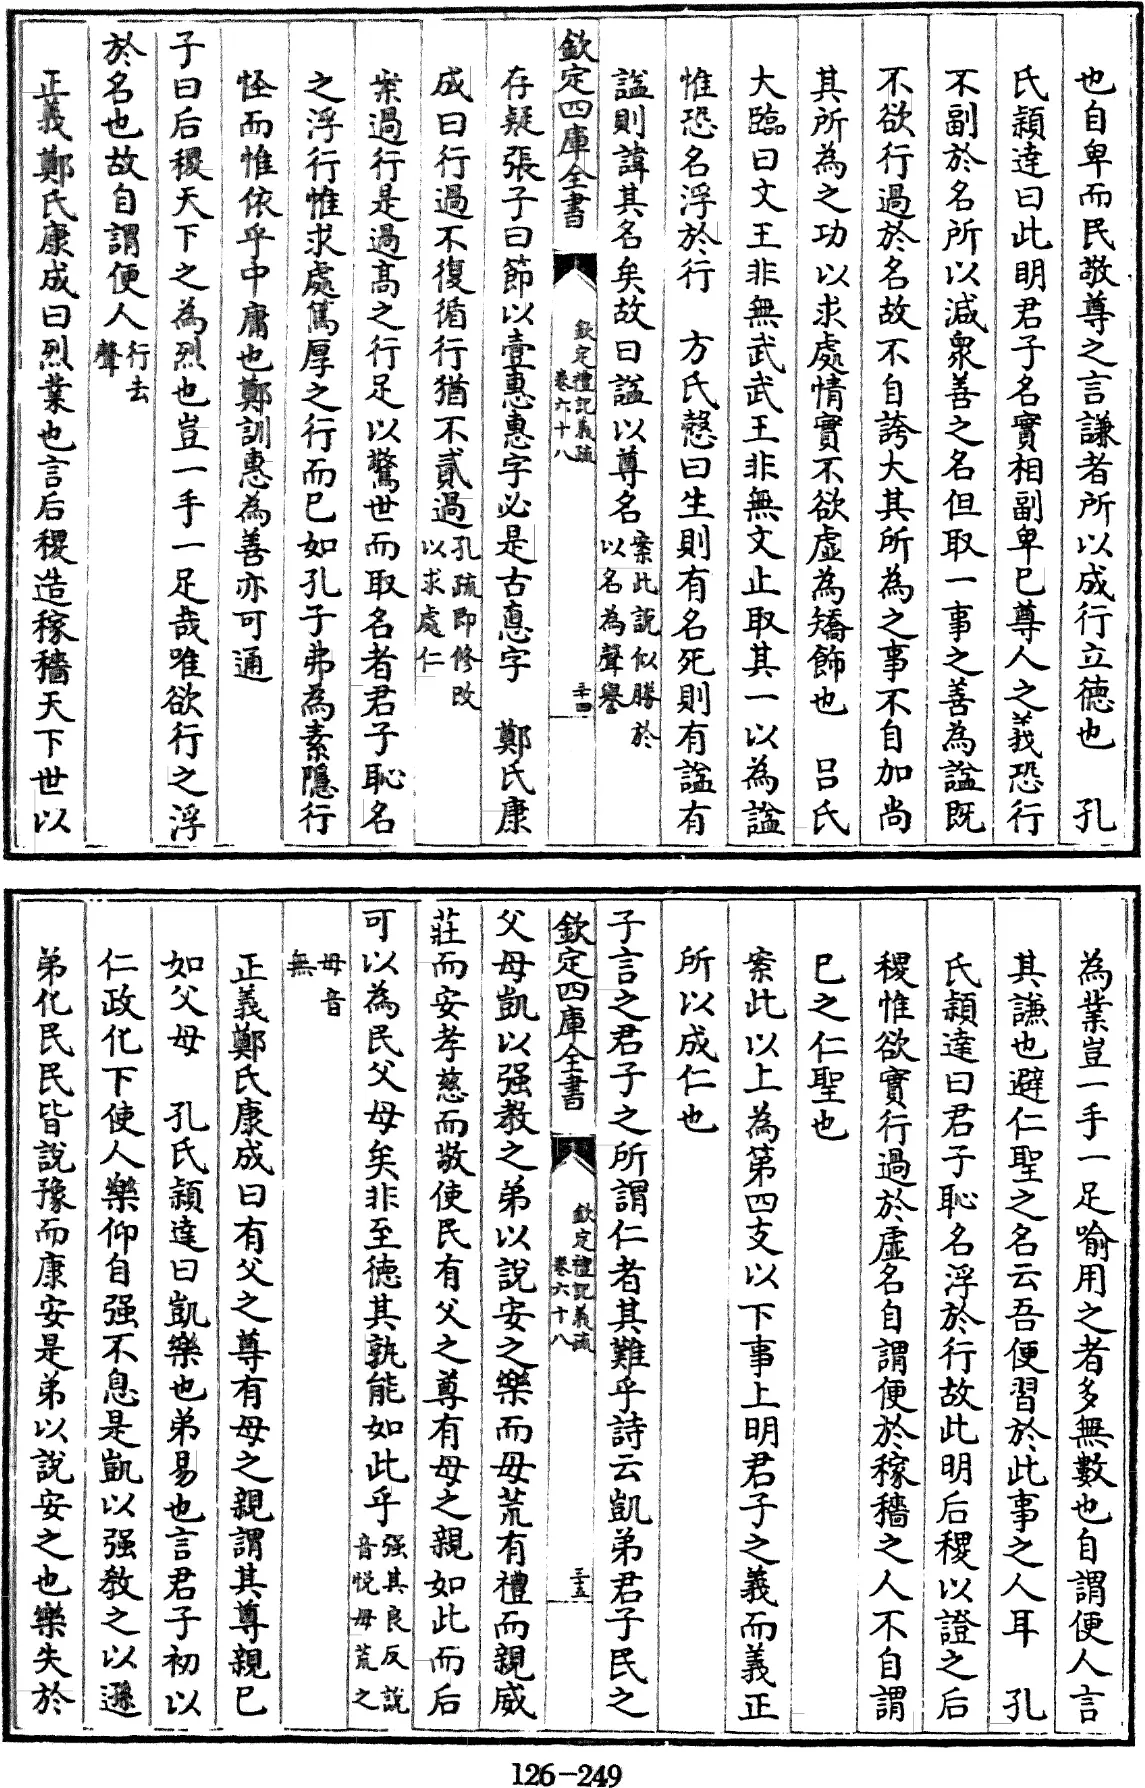 也自卑而民敬尊之言謙者所以成行立徳也　孔
氏穎達曰此明君子名實相副卑已尊人之義恐行
不副於名所以減衆善之名但取一事之善為諡既
不欲行過於名故不自誇大其所為之事不自加尚
其所為之功以求處情實不欲虚為矯飾也　吕氏
大臨曰文王非無武武王非無文止取其一以為諡
惟恐名浮於行　方氏慤曰生則有名死則有諡有
諡則諱其名矣故曰諡以尊名案此説似勝於以名為聲譽
欽定四庫全書
欽定禮記義疏
卷六十八
三十四
存疑張子曰節以壹惠惠字必是古悳字　鄭氏康
成曰行過不復循行猶不貳過孔疏即修改以求處仁
案過行是過髙之行足以驚世而取名者君子恥名
之浮行惟求處篤厚之行而已如孔子弗為素隱行
怪而惟依乎中庸也鄭訓惠為善亦可通
子曰后稷天下之為烈也豈一手一足哉唯欲行之浮
於名也故自謂便人行去聲
正義鄭氏康成曰烈業也言后稷造稼穡天下世以
為業豈一手一足喻用之者多無數也自謂便人言
其謙也避仁聖之名云吾便習於此事之人耳　孔
氏穎達曰君子恥名浮於行故此明后稷以證之后
稷惟欲實行過於虚名自謂便於稼穡之人不自謂
已之仁聖也
案此以上為第四支以下事上明君子之義而義正
所以成仁也
子言之君子之所謂仁者其難乎詩云凱弟君子民之
欽定四庫全書
欽定禮記義疏
卷六十八
三十五
父母凱以强教之弟以說安之樂而毋荒有禮而親威
莊而安孝慈而敬使民有父之尊有母之親如此而后
可以為民父母矣非至徳其孰能如此乎强其良反説音悦毋荒之
毋音無
正義鄭氏康成曰有父之尊有母之親謂其尊親已
如父母　孔氏穎達曰凱樂也弟易也言君子初以
仁政化下使人樂仰自强不息是凱以强教之以遜
弟化民民皆說豫而康安是弟以說安之也樂失於
126-249